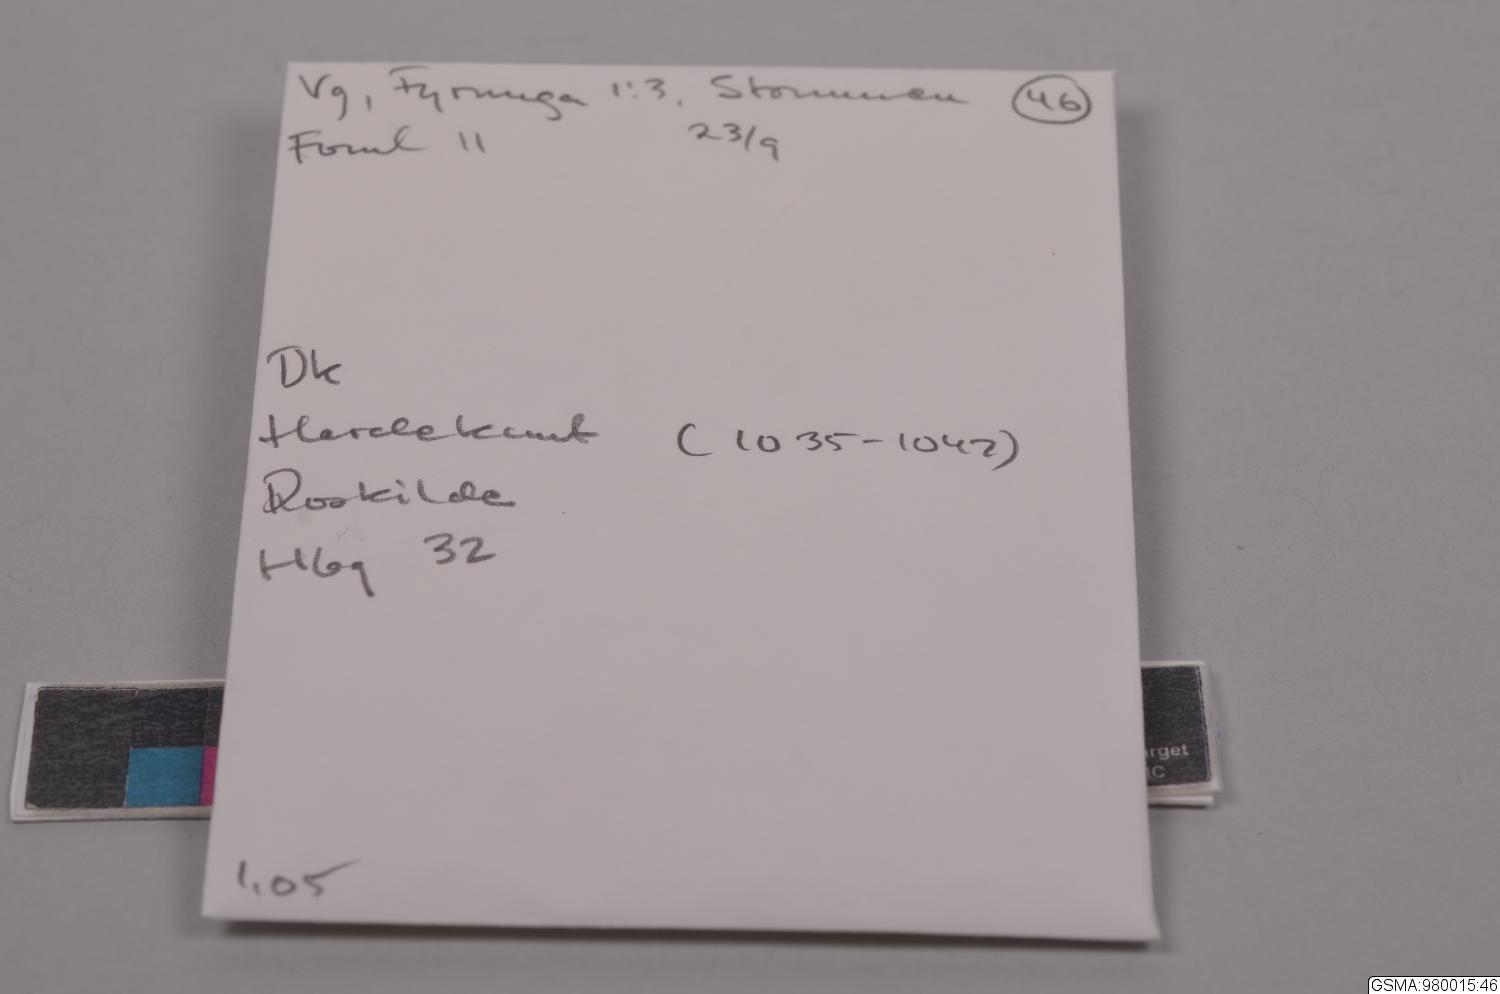 Vg, Fyrunga 1:3, Stommen 46
Fornl 11 23/9
Dk
Hardeknut (1035-1042)
Roskilde
Hbg 32
1,05
rget
IC
GSMA:980015:46